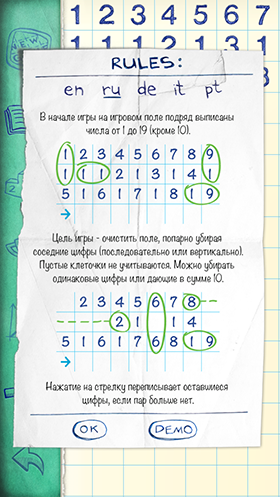 1 2 3 4 5 6 7 8 9
RULES:
en ru de it pt
В начале игры на игровом поле подряд выписаны
числа от 1 до 19 (кроме 10).
1 2 3 4 5 6 7 8 9
1 1 1 2 1 3 1 4 1
5 1 6 1 7 1 8 1 9
Цель игры - очистить поле, попарно убирая
соседние цифры (последовательно или вертикально).
Пустые клеточки не учитываются. Можно убирать
одинаковые цифры или дающие в сумме 10.
2 3 4 5 6 7 8
2 1 1 4
5 1 6 1 7 1 8 1 9
Нажатие на стрелку переписывает оставшиеся
цифры, если пар больше нет.
OK DEMO